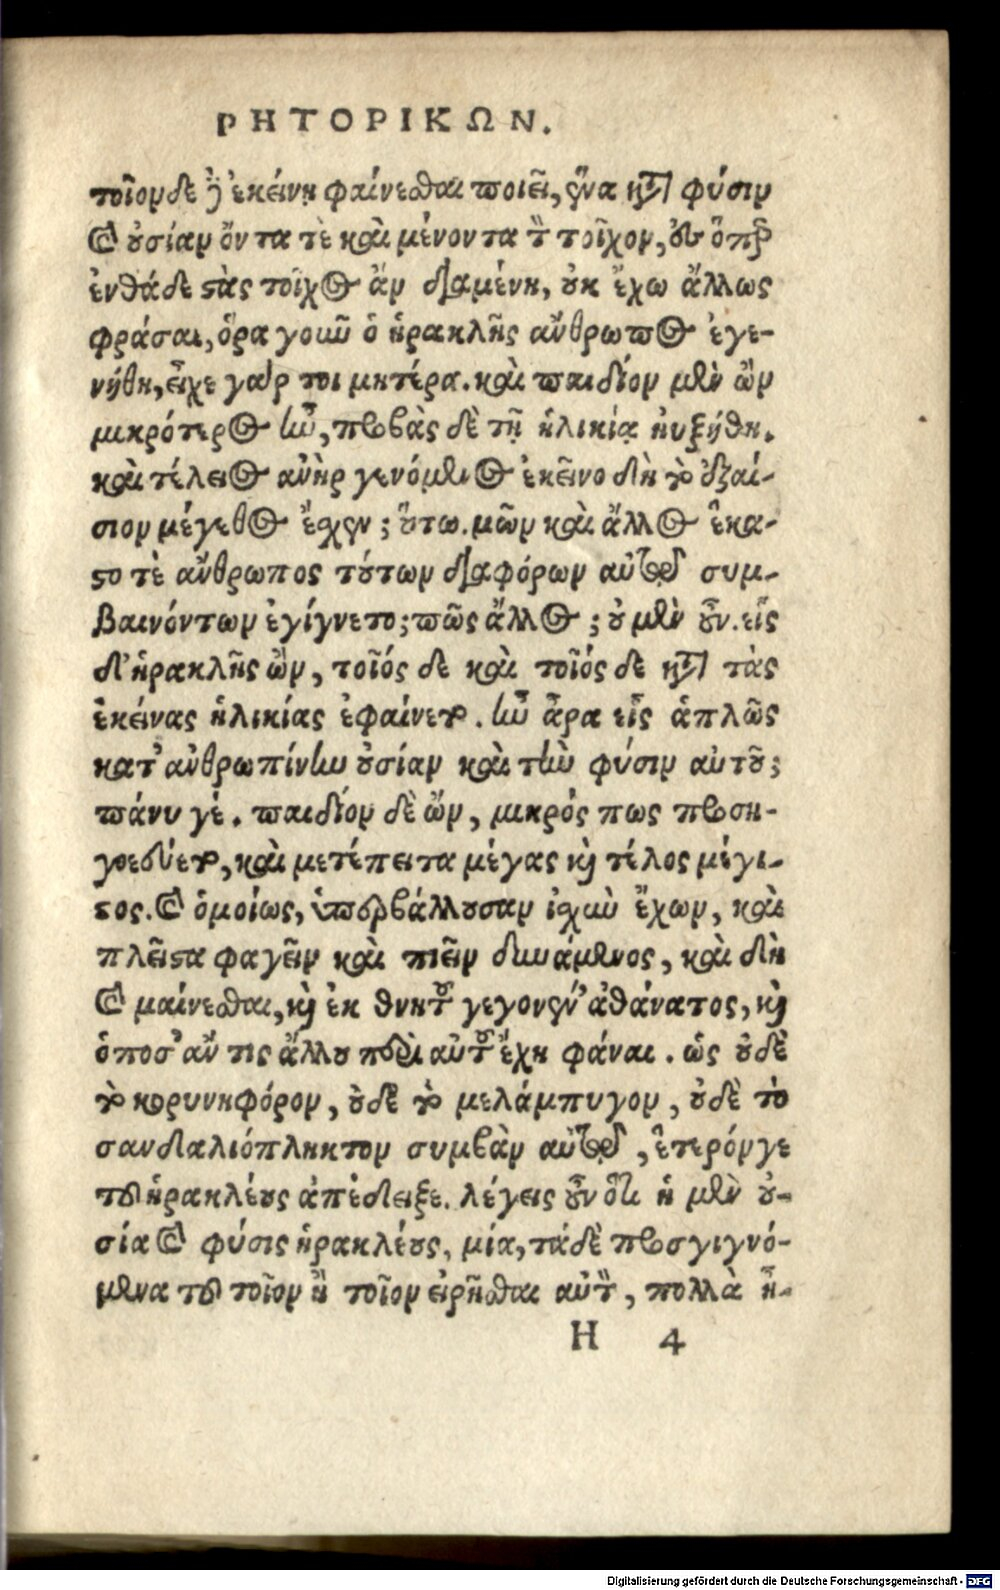 ΡΗΤΟΡΙΚΩΝ.
τοῖον δε ἢ ἐκείνη φαίνεσθαι ποιεῖ, ἕνα κατὰ φύσιν
καὶ οὐσίαν ὄντα τὲ καὶ μένοντα τὸν τοῖχον, οὗ ὅπερ
ἐνθάδε στὰς τοῖχος ἂν διαμένη, οὐκ ἔχω ἄλλως
φράσαι, ὅρα γοῦν ὁ ἡρακλῆς ἄνθρωπος ἐγε-
νήθη, εἶχε γάρ τοι μητέρα. καὶ παιδίον μὲν ὢν
μικρότερος ἦν, προβὰς δὲ τῇ ἡλικίᾳ ηὐξήθη.
καὶ τέλειος ἀνὴρ γενόμενος ἐκεῖνο δὴ τὸ ἐξαί-
σιον μέγεθος ἔχειν; οὕτω. μῶν καὶ ἄλλος ἕκα-
στοτὲ ἄνθρωπος τούτων διαφόρων αὐτῷ συμ-
βαινόντων ἐγίγνετο; πῶς ἄλλος; οὐ μὲν οὖν. εἷς
δ' ἡρακλῆς ὢν, τοῖός δε καὶ τοῖός δε κατὰ τὰς
ἐκείνας ἡλικίας ἐφαίνετο. ἦν ἆρα εἷς ἁπλῶς
κατ' ἀνθρωπίνην οὐσίαν καὶ τὴν φύσιν αὐτοῦ;
πάνυ γέ. παιδίον δὲ ὢν, μικρός πως προση-
γορεύετο, καὶ μετέπειτα μέγας καὶ τέλος μέγι-
στος. καὶ ὁμοίως, ὑπερβάλλουσαν ἰσχὺν ἔχων, καὶ
πλεῖστα φαγεῖν καὶ πιεῖν δυνάμενος, καὶ δὴ
καὶ μαίνεσθαι, καὶ ἐκ θνητοῦ γεγονεῖν ἀθάνατος, καὶ
ὁποσ' ἄν τις ἄλλου περὶ αὐτοῦ ἔχη φάναι. ὡς οὐδὲ
τὸ κορυνηφόρον, οὐδὲ τὸ μελάμπυγον, οὐδὲ τὸ
σανδαλιόπληκτον συμβὰν αὐτῷ, ἑτερόνγε
τοῦ ἡρακλέους ἀπέδειξε. λέγεις οὖν ὅτι ἡ μὲν οὐ-
σία καὶ φύσις ἡρακλέους, μία, τάδὲ προσγιγνό-
μενα τοῦ τοῖον ἢ τοῖον εἰρῆσθαι αὐτὸν, πολλὰ ἦ-
H 4
Digitalisierung gefördert durch die Deutsche Forschungsgemeinschaft - DFG